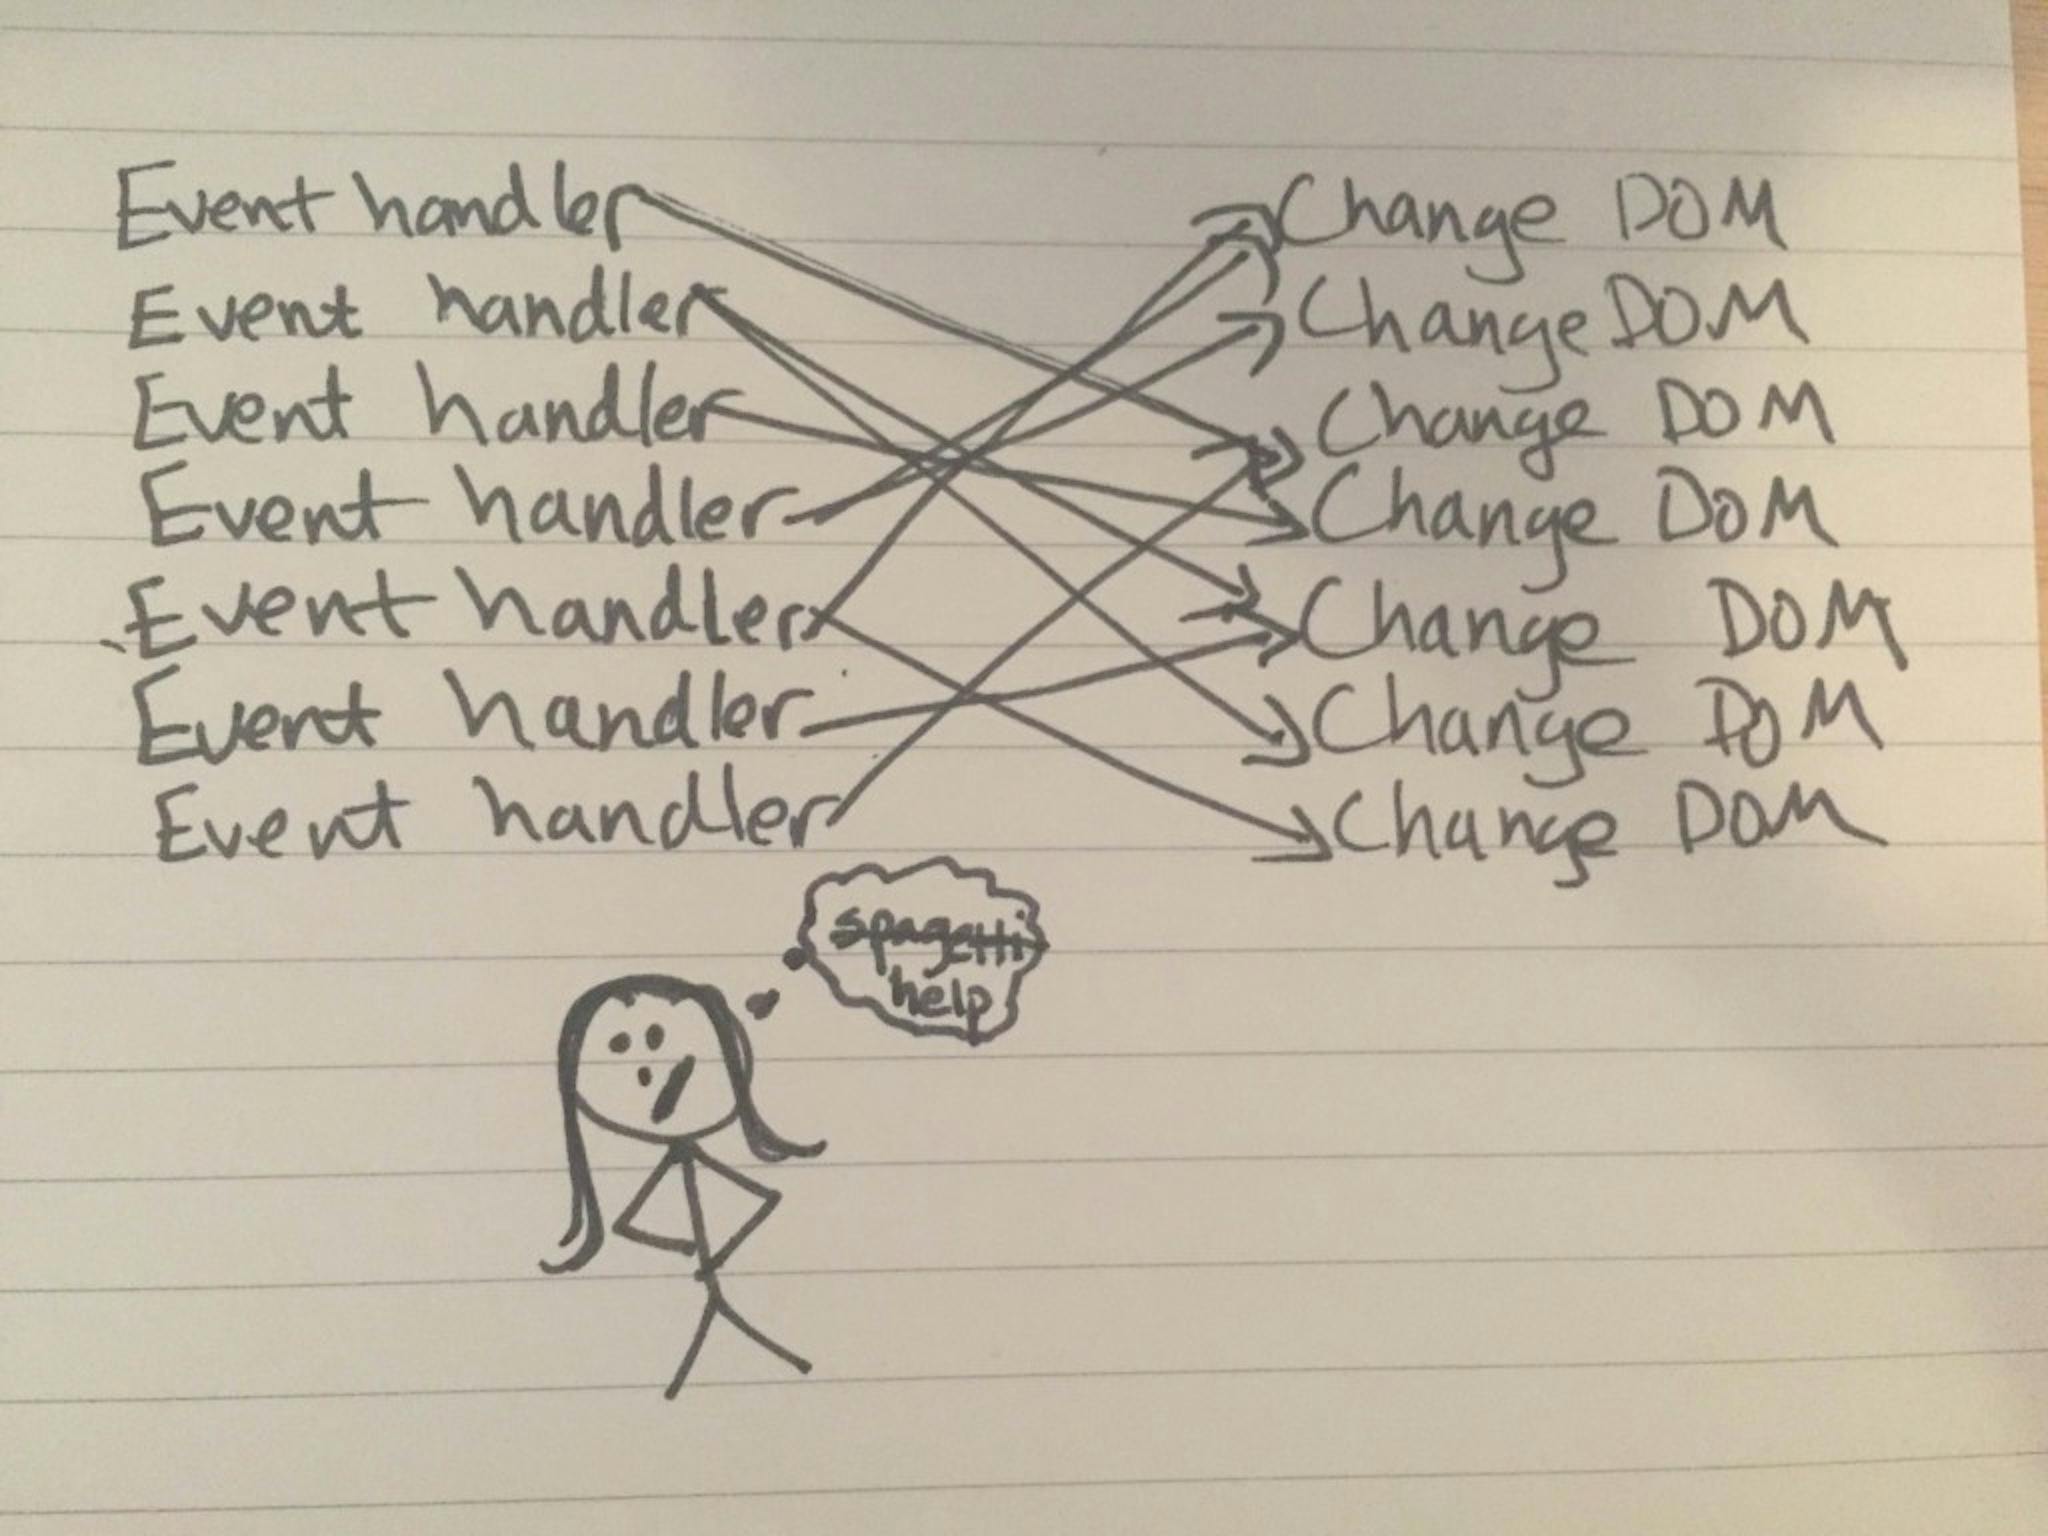 Event handler Change DOM
Event handler Change DOM
Event handler Change DOM
Event handler Change DOM
Event handler Change DOM
Event handler Change DOM
Event handler Change DOM
spagetti
help